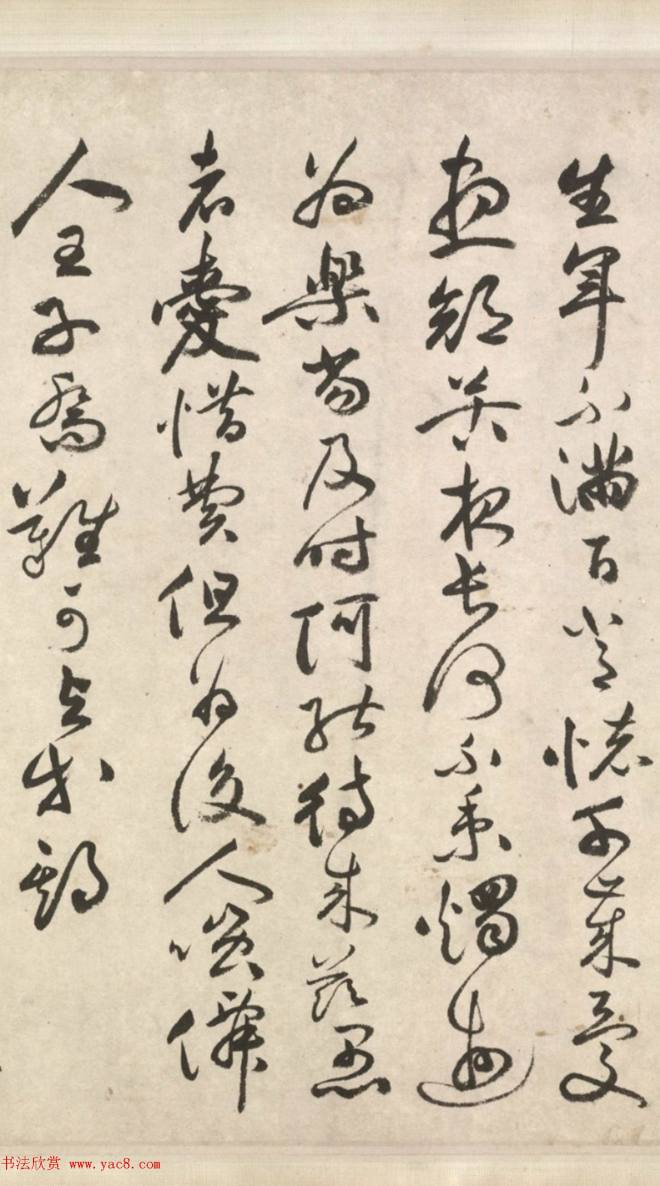 生年不滿百常懷千歲憂
晝短苦夜長何不秉燭遊
為樂當及時何能待來茲愚
者愛惜費但為後人嗤僊
人王子喬難可與等期
书法欣赏 www.yac8.com